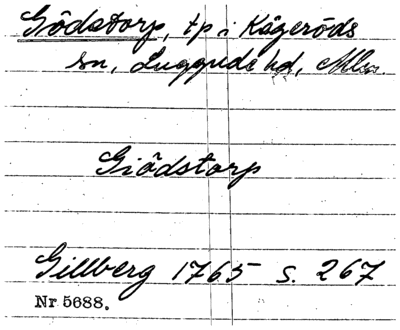 Gödstorp, tp i Kågeröds
sn, Luggude hd, Mlm.
Giödstorp
Gillberg 1765 s. 267
Nr 5688.